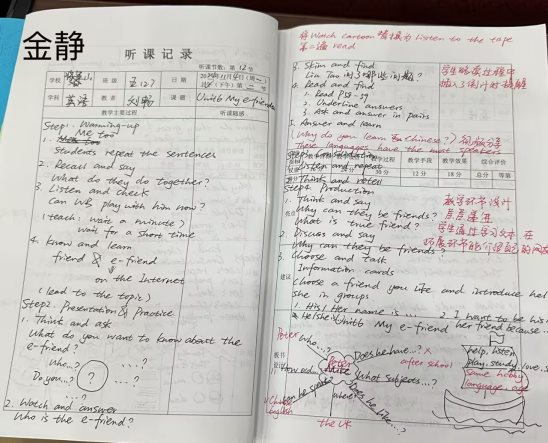 金静
听课记录
听课节数：第12节
学校
班级
五(2)
日期
学科
英语
教者
刘畅
课题
Unit6 My e-friend
教学主要过程
听课随感
Step1. Warming-up
1. Me too
Students repeat the sentences
2. Recall and say
What do they do together?
3. Listen and check
Can WB play with him now?
(teach: wait a minute)
wait for a short time
4. Know and learn
friend & e-friend
on the Internet
(lead to the topic)
Step2. Presentation & Practice
1. Think and ask
What do you want to know about the
e-friend?
Who...?
...?
Do you...?
?
...?
...?
2. Watch and answer
Who is the e-friend?
将 Watch cartoon 替换为 Listen to the tape
第二遍 read
3. Skim and find
Liu Tao 问了哪些问题?
4. Read and find
1. Read P58-59
2. Underline answers
3. Ask and answer in pairs
5. Answer and learn
(Why do you learn Chinese?)
These languages have the most speakers
学生略读过程中
插入了倒计时提醒
教学过程
教学手段
教学效果
综合评价
12分
18分
总分
等第
Listen and repeat
Think and retell
Step4. Production
1. Think and say
Why can they be friends?
What is true friend?
2. Discuss and say
Why can they be friends?
3. Choose and talk
Information cards
Choose a friend you like and introduce
she in groups
教学环节设计
层层递进
学生通过学习文本 在
亮点
建议
板书
设计
1. His/Her name is... 2. I want to be his
Unit6 My e-friend
her friend because...
Peter
Who...?
Does he have...? ×
after school
What subjects...?
Does he like...?
Chinese
English
the UK
help, listen
play, study, love
same hobby
language, age